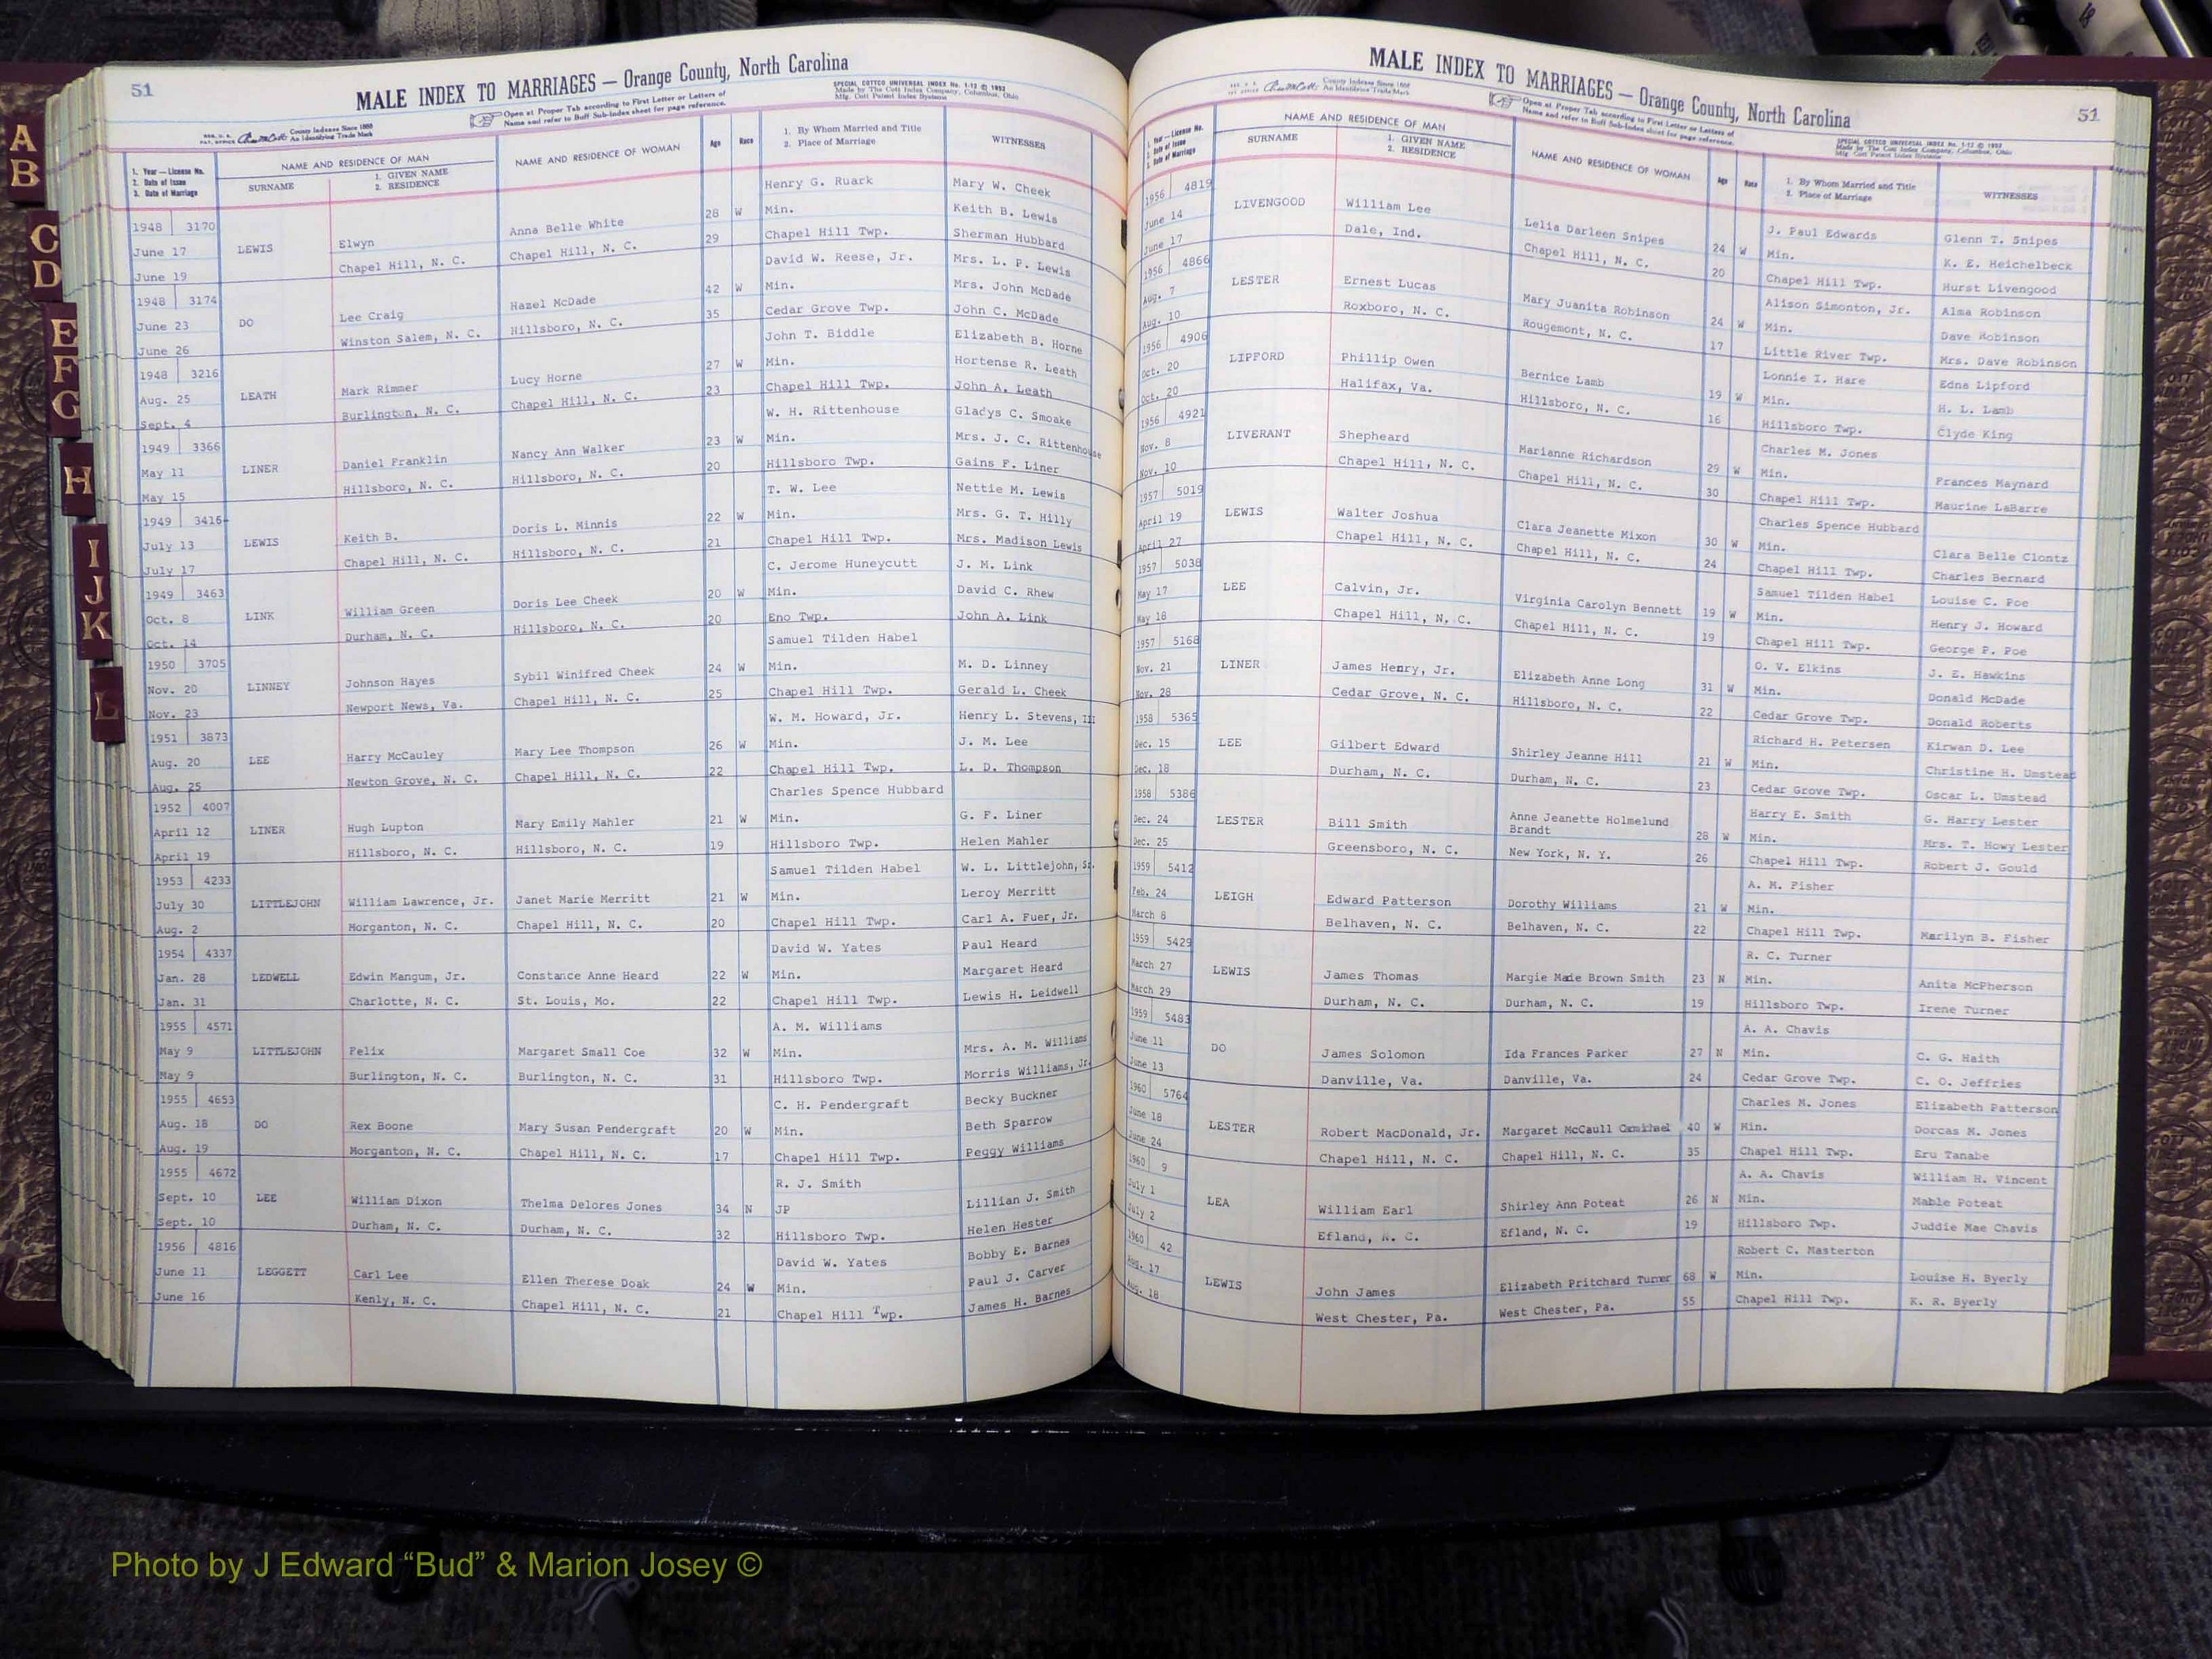 51
MALE INDEX TO MARRIAGES — Orange County, North Carolina
SPECIAL COTTCO UNIVERSAL INDEX No. 1-12 © 1952
Made by The Cott Index Company, Columbus, Ohio
Mfg. Cott Patent Index Systems
Open at Proper Tab according to First Letter or Letters of
Name and refer to Buff Sub-Index sheet for page reference.
County Indexes Since 1888
An Identifying Trade Mark
1. Year — License No.
2. Date of Issue
3. Date of Marriage
NAME AND RESIDENCE OF MAN
SURNAME
1. GIVEN NAME
2. RESIDENCE
NAME AND RESIDENCE OF WOMAN
Age
Race
1. By Whom Married and Title
2. Place of Marriage
WITNESSES
Henry G. Ruark Mary W. Cheek
1948 3170 Anna Belle White 28 W Min. Keith B. Lewis
June 17 LEWIS Elwyn Chapel Hill, N. C. 29 Chapel Hill Twp. Sherman Hubbard
June 19 Chapel Hill, N. C. David W. Reese, Jr. Mrs. L. P. Lewis
1948 3174 Hazel McDade 42 W Min. Mrs. John McDade
June 23 DO Lee Craig Hillsboro, N. C. 35 Cedar Grove Twp. John C. McDade
June 26 Winston Salem, N. C. John T. Biddle Elizabeth B. Horne
1948 3216 Lucy Horne 27 W Min. Hortense R. Leath
Aug. 25 LEATH Mark Rimmer Chapel Hill, N. C. 23 Chapel Hill Twp. John A. Leath
Sept. 4 Burlington, N. C. W. H. Rittenhouse Gladys C. Smoake
1949 3366 Nancy Ann Walker 23 W Min. Mrs. J. C. Rittenhouse
May 11 LINER Daniel Franklin Hillsboro, N. C. 20 Hillsboro Twp. Gains F. Liner
May 15 Hillsboro, N. C. T. W. Lee Nettie M. Lewis
1949 3416 Doris L. Minnis 22 W Min. Mrs. G. T. Hilly
July 13 LEWIS Keith B. Hillsboro, N. C. 21 Chapel Hill Twp. Mrs. Madison Lewis
July 17 Chapel Hill, N. C. C. Jerome Huneycutt J. M. Link
1949 3463 Doris Lee Cheek 20 W Min. David C. Rhew
Oct. 8 LINK William Green Hillsboro, N. C. 20 Eno Twp. John A. Link
Oct. 14 Durham, N. C. Samuel Tilden Habel
1950 3705 Sybil Winifred Cheek 24 W Min. M. D. Linney
Nov. 20 LINNEY Johnson Hayes Chapel Hill, N. C. 25 Chapel Hill Twp. Gerald L. Cheek
Nov. 23 Newport News, Va. W. M. Howard, Jr. Henry L. Stevens, III
1951 3873 Mary Lee Thompson 26 W Min. J. M. Lee
Aug. 20 LEE Harry McCauley Chapel Hill, N. C. 22 Chapel Hill Twp. L. D. Thompson
Aug. 25 Newton Grove, N. C. Charles Spence Hubbard
1952 4007 Mary Emily Mahler 21 W Min. G. F. Liner
April 12 LINER Hugh Lupton Hillsboro, N. C. 19 Hillsboro Twp. Helen Mahler
April 19 Hillsboro, N. C. Samuel Tilden Habel W. L. Littlejohn, Sr.
1953 4233 21 W Min. Leroy Merritt
July 30 LITTLEJOHN William Lawrence, Jr. Janet Marie Merritt 20 Chapel Hill Twp. Carl A. Fuer, Jr.
Aug. 2 Morganton, N. C. Chapel Hill, N. C. David W. Yates Paul Heard
1954 4337 Margaret Heard
Jan. 28 LEDWELL Edwin Mangum, Jr. Constance Anne Heard 22 W Min. Lewis H. Leidwell
Jan. 31 Charlotte, N. C. St. Louis, Mo. 22 Chapel Hill Twp.
1955 4571 A. M. Williams
May 9 LITTLEJOHN Felix Margaret Small Coe 32 W Min. Mrs. A. M. Williams
May 9 Burlington, N. C. Burlington, N. C. 31 Hillsboro Twp. Morris Williams, Jr.
1955 4653 C. H. Pendergraft Becky Buckner
Aug. 18 DO Rex Boone Mary Susan Pendergraft 20 W Min. Beth Sparrow
Aug. 19 Morganton, N. C. Chapel Hill, N. C. 17 Chapel Hill Twp. Peggy Williams
1955 4672 R. J. Smith
Sept. 10 LEE William Dixon Thelma Delores Jones 34 N JP Lillian J. Smith
Sept. 10 Durham, N. C. Durham, N. C. 32 Hillsboro Twp. Helen Hester
1956 4816 David W. Yates Bobby E. Barnes
June 11 LEGGETT Carl Lee Ellen Therese Doak 24 W Min. Paul J. Carver
June 16 Kenly, N. C. Chapel Hill, N. C. 21 Chapel Hill Twp. James H. Barnes
MALE INDEX TO MARRIAGES — Orange County, North Carolina
51
County Indexes Since 1888
An Identifying Trade Mark
Open at Proper Tab according to First Letter or Letters of
Name and refer to Buff Sub-Index sheet for page reference.
SPECIAL COTTCO UNIVERSAL INDEX No. 1-12 © 1952
Made by The Cott Index Company, Columbus, Ohio
Mfg. Cott Patent Index Systems
1. Year — License No.
2. Date of Issue
3. Date of Marriage
NAME AND RESIDENCE OF MAN
SURNAME
1. GIVEN NAME
2. RESIDENCE
NAME AND RESIDENCE OF WOMAN
Age
Race
1. By Whom Married and Title
2. Place of Marriage
WITNESSES
1956 4819 J. Paul Edwards Glenn T. Snipes
June 14 LIVENGOOD William Lee Lelia Darleen Snipes 24 W Min. K. E. Heichelbeck
June 17 Dale, Ind. Chapel Hill, N. C. 20 Chapel Hill Twp. Hurst Livengood
1956 4866 Alison Simonton, Jr. Alma Robinson
Aug. 7 LESTER Ernest Lucas Mary Juanita Robinson 24 W Min. Dave Robinson
Aug. 10 Roxboro, N. C. Rougemont, N. C. 17 Little River Twp. Mrs. Dave Robinson
1956 4906 Lonnie I. Hare Edna Lipford
Oct. 20 LIPFORD Phillip Owen Bernice Lamb 19 W Min. H. L. Lamb
Oct. 20 Halifax, Va. Hillsboro, N. C. 16 Hillsboro Twp. Clyde King
1956 4921 Charles M. Jones
Nov. 8 LIVERANT Shepheard Marianne Richardson 29 W Min. Frances Maynard
Nov. 10 Chapel Hill, N. C. Chapel Hill, N. C. 30 Chapel Hill Twp. Maurine LaBarre
1957 5019 Charles Spence Hubbard
April 19 LEWIS Walter Joshua Clara Jeanette Mixon 30 W Min. Clara Belle Clontz
April 27 Chapel Hill, N. C. Chapel Hill, N. C. 24 Chapel Hill Twp. Charles Bernard
1957 5038 Samuel Tilden Habel Louise C. Poe
May 17 LEE Calvin, Jr. Virginia Carolyn Bennett 19 W Min. Henry J. Howard
May 18 Chapel Hill, N. C. Chapel Hill, N. C. 19 Chapel Hill Twp. George P. Poe
1957 5168 O. V. Elkins J. E. Hawkins
Nov. 21 LINER James Henry, Jr. Elizabeth Anne Long 31 W Min. Donald McDade
Nov. 28 Cedar Grove, N. C. Hillsboro, N. C. 22 Cedar Grove Twp. Donald Roberts
1958 5365 Richard H. Petersen Kirwan D. Lee
Dec. 15 LEE Gilbert Edward Shirley Jeanne Hill 21 W Min. Christine H. Umstead
Dec. 18 Durham, N. C. Durham, N. C. 23 Cedar Grove Twp. Oscar L. Umstead
1958 5386 Harry E. Smith G. Harry Lester
Dec. 24 LESTER Bill Smith Anne Jeanette Holmelund Brandt 28 W Min. Mrs. T. Howy Lester
Dec. 25 Greensboro, N. C. New York, N. Y. 26 Chapel Hill Twp. Robert J. Gould
1959 5412 A. M. Fisher
Feb. 24 LEIGH Edward Patterson Dorothy Williams 21 W Min.
March 8 Belhaven, N. C. Belhaven, N. C. 22 Chapel Hill Twp. Marilyn B. Fisher
1959 5429 R. C. Turner
March 27 LEWIS James Thomas Margie Marie Brown Smith 23 N Min. Anita McPherson
March 29 Durham, N. C. Durham, N. C. 19 Hillsboro Twp. Irene Turner
1959 5483 A. A. Chavis
June 11 DO James Solomon Ida Frances Parker 27 N Min. C. G. Haith
June 13 Danville, Va. Danville, Va. 24 Cedar Grove Twp. C. O. Jeffries
1960 5764 Charles M. Jones Elizabeth Patterson
June 18 LESTER Robert MacDonald, Jr. Margaret McCaull Carmichael 40 W Min. Dorcas M. Jones
June 24 Chapel Hill, N. C. Chapel Hill, N. C. 35 Chapel Hill Twp. Eru Tanabe
1960 9 A. A. Chavis William H. Vincent
July 1 LEA William Earl Shirley Ann Poteat 26 N Min. Mable Poteat
July 2 Efland, N. C. Efland, N. C. 19 Hillsboro Twp. Juddie Mae Chavis
1960 42 Robert C. Masterton
Aug. 17 LEWIS John James Elizabeth Pritchard Turner 68 W Min. Louise H. Byerly
Aug. 18 West Chester, Pa. West Chester, Pa. 55 Chapel Hill Twp. K. R. Byerly
A
B
C
D
E
F
G
H
I
J
K
L
Photo by J Edward “Bud” & Marion Josey ©